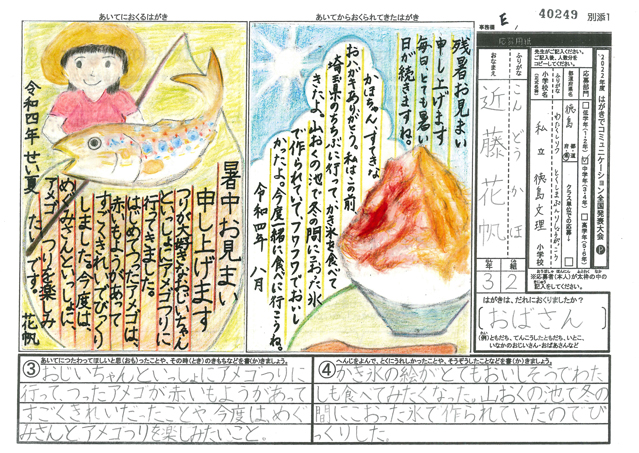 あいてにおくるはがき
暑中お見まい
申し上げます
つりが大好きなおじいちゃん
といっしょにアメゴつりに
行ってきました。
はじめてつったアメゴは、
赤いもようがあって
すごくきれいでびっくり
しました。今度は、
めぐみさんといっしょに
アメゴつりを楽しみ
たいです。
令和四年 せい夏
花帆
あいてからおくられてきたはがき
残暑お見まい
申し上げます
毎日、とても暑い
日が続きますね。
かほちゃん、すてきな
おハガキありがとう。私はこの前
埼玉県のちちぶに行って、かき氷を食べて
きたよ。山おくの池で冬の間にこおった氷
で作られていて、フワフワでおいし
かったよ。今度一緒に食べに行こうね。
令和四年 八月
事務局 E
40249 別添1
2022年度 はがきでコミュニケーション全国発表大会
応募用紙
先生がご記入ください。
ご記入後、人数分を
コピーしてください。
応募部門
低学年(1・2年)
中学年(3・4年)
高学年(5・6年)
クラス単位での応募
都道府県名
徳島
ふりがな
小学校名
(正式名称)
私立 徳島文理 小学校
ふりがな
こんどう かほ
おなまえ
近藤 花帆
3年
2組
※応募者(本人)が太枠の中の
記入をしてください。
はがきは、だれにおくりましたか?
(おばさん)
(例)ともだち、てんこうしたともだち、いとこ、
いなかのおじいさん・おばあさんなど
③あいてにつたわってほしいと思(おも)ったことや、その時(とき)のきもちなどを書(か)きましょう。
おじいちゃんといっしょにアメゴつりに
行ってつったアメゴが赤いもようがあって
すごくきれいだったことや今度は、めぐ
みさんとアメゴつりを楽しみたいこと。
④へんじをよんで、とくにうれしかったことや、そうぞうしたことなどを書(か)きましょう。
かき氷の絵がとてもおいしそうでわた
しも食べてみたくなった。山おくの池で冬の
間にこおった氷で作られていたのでび
っくりした。